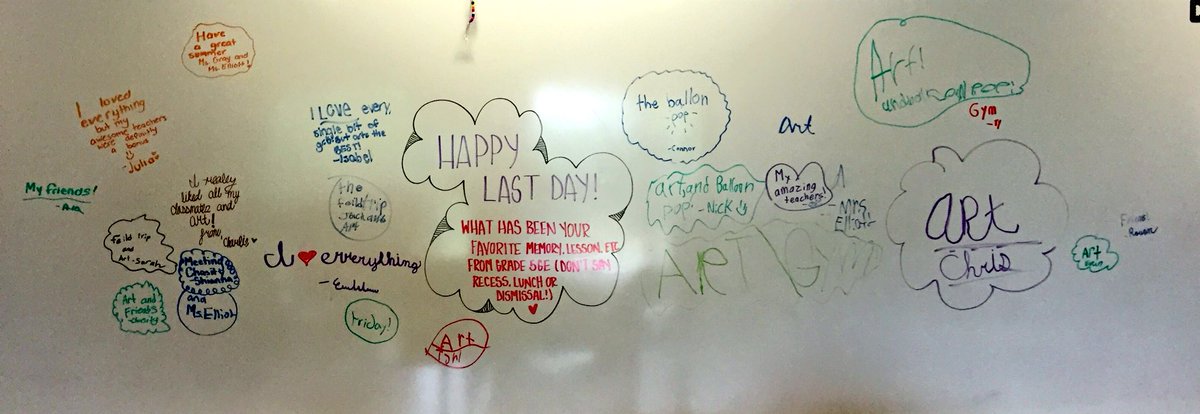 Have
a great
summer
Ms. Gray and
Ms. Elliott!
I loved
everything
but my
awesome teachers
were definitly
a bonus
-Julia
My friends!
I really
liked all my
classmate and
art!
from,
charlie
feild trip
and
Art-Sarah
Meeting
Chasity
and
Ms. Elliott
Art and
Friends
-chasity
I LOVE every,
single bit of
but art's the
BEST!
-Isabel
the
feild trip
Art
I ❤ everything
Friday!
Art
HAPPY
LAST DAY!
WHAT HAS BEEN YOUR
FAVORITE MEMORY, LESSON, ETC
FROM GRADE 5GE (DON'T SAY
RECESS, LUNCH OR
DISMISSAL!)
the ballon
-pop-
-Connor
art and Balloon
pop -Nick
art
My
amazing
teachers!
-Mrs.
Elliott
ART GYM
Art!
Gym
ART
Chris
Art
Friends
Rowan